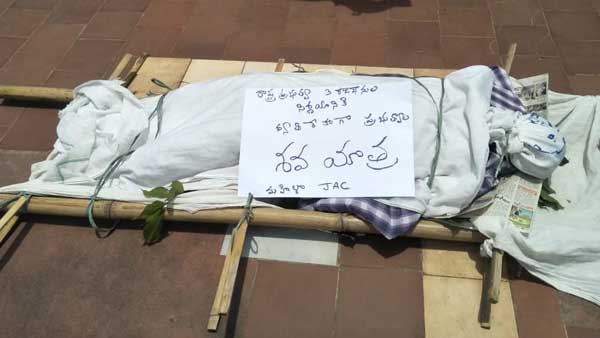 రాష్ట్ర ప్రభుత్వ 3 రాజధానుల
నిర్ణయానికి
వ్యతిరేకంగా ప్రభుత్వ
శవ యాత్ర
మహిళా JAC